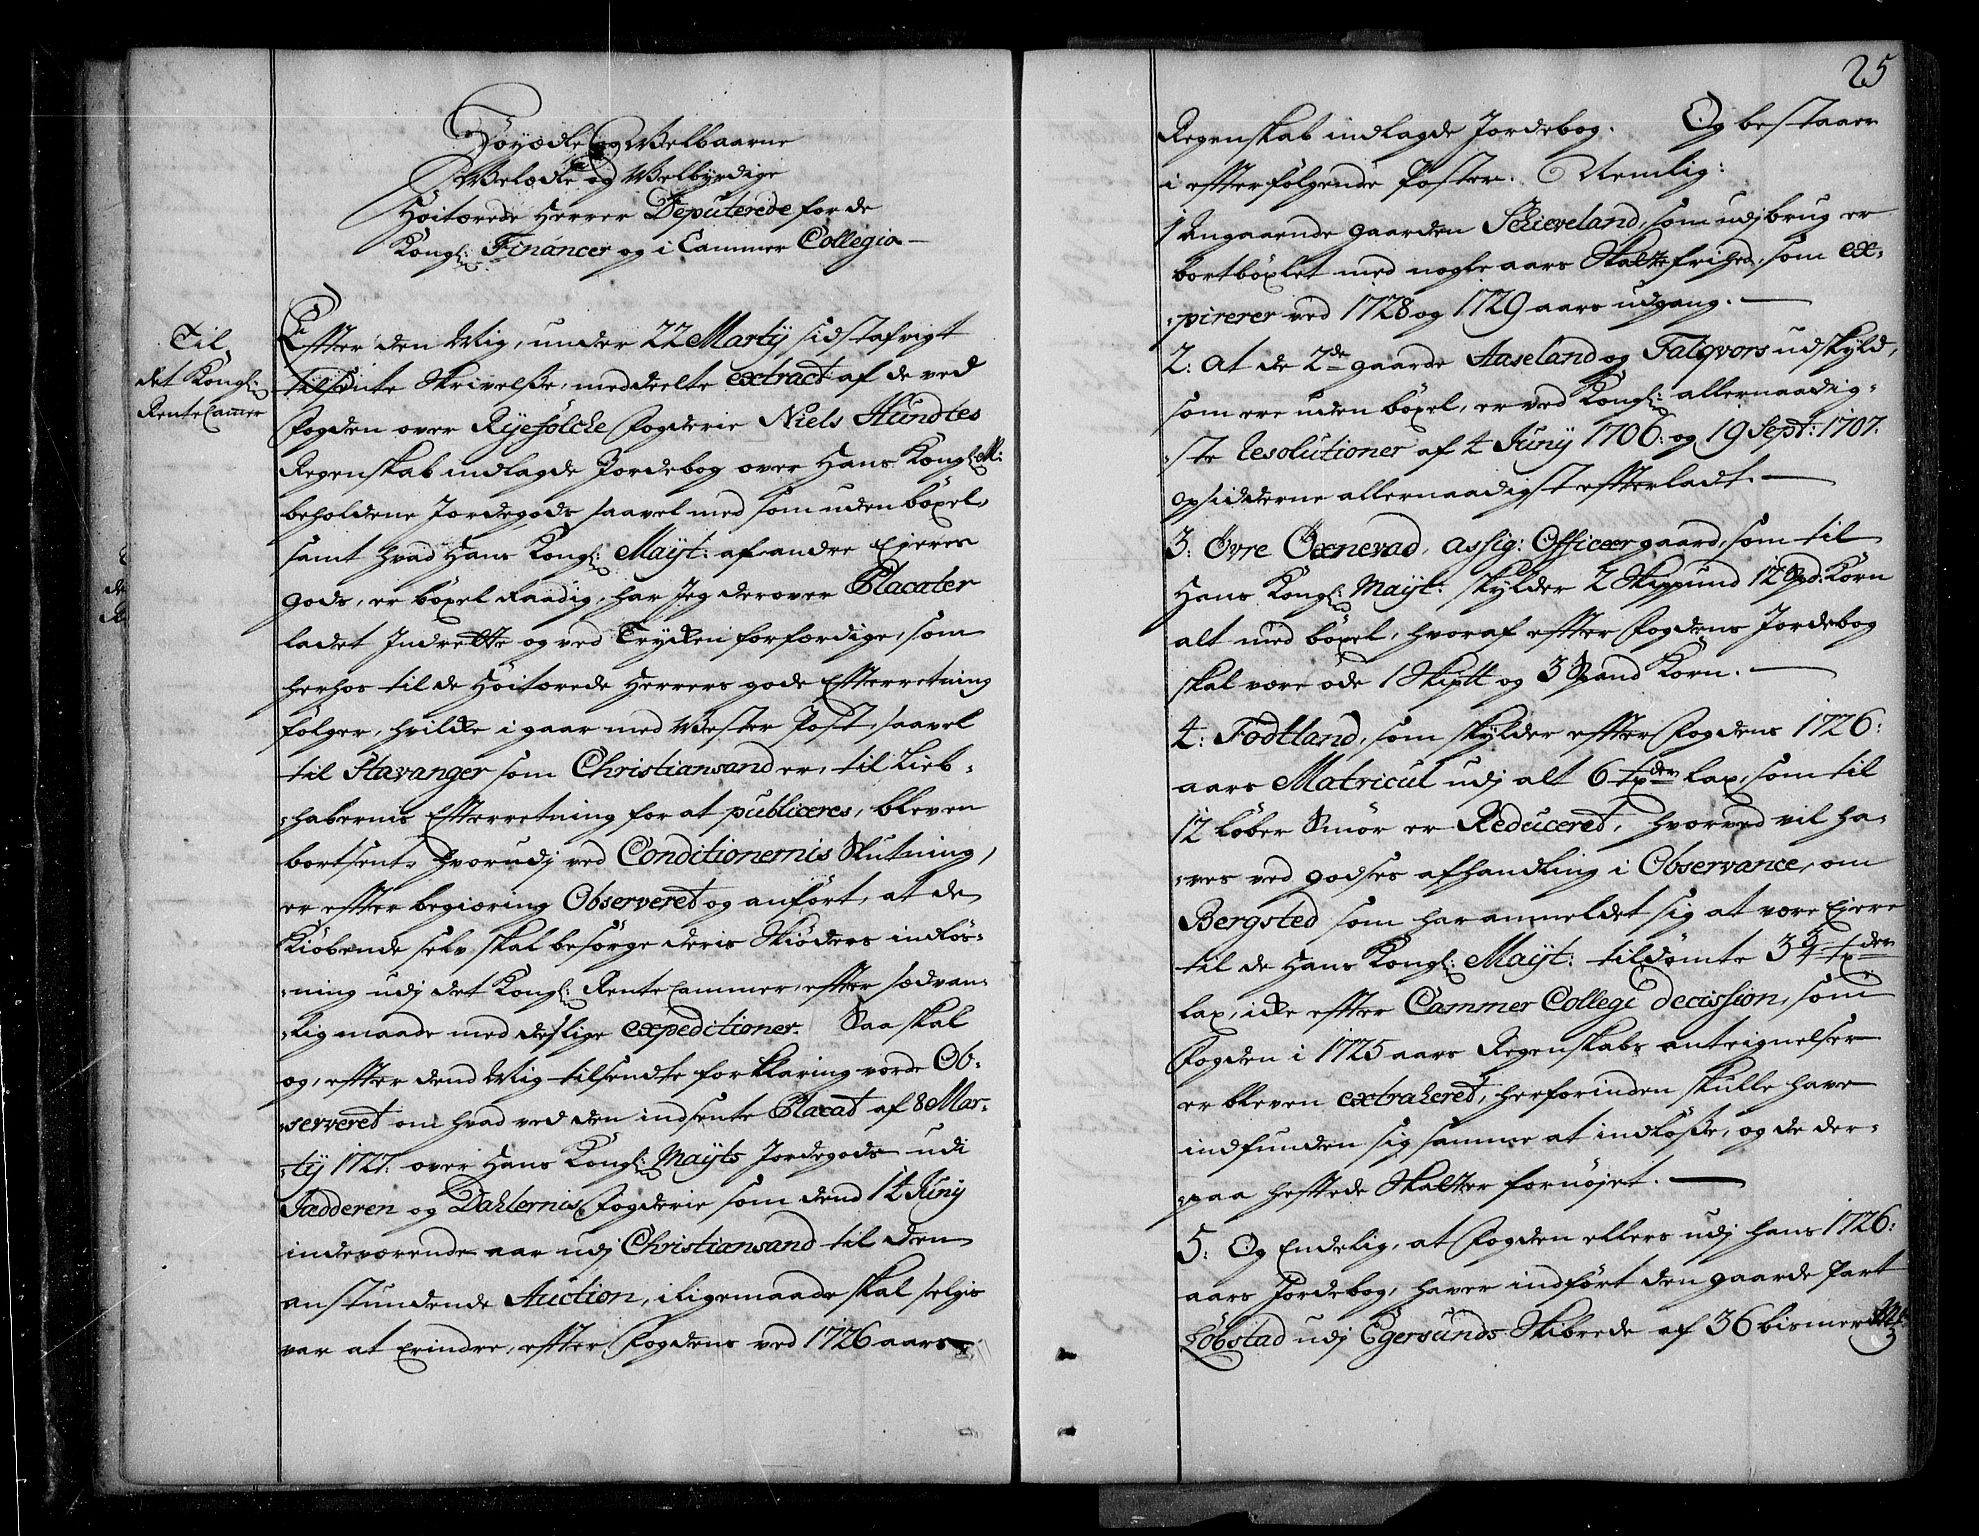 Höyædle og Welbaarne
Welædle og Welbÿrdige
Höitærede Herrer Deputerede for de
Kongl: Financer og i Cammer Collegio
Til
det Kongl:
Rente Camer
Effter den Mig, under 22 Martij sidst afvigt
tilsendte Skrivelsse, meddeelte extract af de ved
Fogden over Rÿefölcke Fogderie Niels Hundtes
Regenskab indlagde Jordebog over Hans Kongl: M:
beholdene Jordegods saavel med som uden böxel,
samt hvad Hans Kongl: Maÿt: af andre Ejeres
gods, er böxel Raadig, har Jeg derover Placater
ladet Indrette og ved Trÿcken forfærdige, som
herhos til de Höitærede Herrers gode Effterretning
fölger, hvilcke i gaar med Wester Post, saavel
til Stavanger som Christiansand er, til Lieb-
-habernis Effterretning for at publiceres, bleven
bortsent, hvorudj ved Conditionernis Slutning,
er effter begiæring Observeret og anfört, at de
Kiöbende selv skal besörge deris Skiöders indlös-
-ning udj det Kongl: Rente Cammer, effter sædvan-
-lig maade med deslige expeditioner. Saa skal
og, effter dend Mig tilsendte forklaring vorde Ob-
-serveret om hvad ved den indsente Placat af 8 Mar-
-tÿ 1727. over Hans Kongl: Maÿts Jordegods udi
Jædderen og Dahlernis Fogderie som dend 14 Junÿ
indeværende aar udj Christiansand til den
anstundende Auction, iligemaade skal selgis
var at Erindre, effter Fogdens ved 1726 aars
25
Regenskab indlagde Jordebog. Og bestaaer
i effterfölgende Poster. Nemlig:
1 Angaaende gaarden Schieveland, som udj brug er
bortböxlet med nogle aars Skatte frihed, som ex-
-pirerer ved 1728 og 1729 aars udgang.
2: At de 2de gaarde Aaseland og Faliqvors udskÿld,
som ere uden böxel, er ved Kongl: allernaadig-
-ste Resolutioner af 4 Junÿ 1706: og 19 Sept: 1707.
opsidderne allernaadigst effterladt.
3: Övre Oxnevad, assig: Officeer gaard, som til
Hans Kongl: Maÿt: skÿlder 2 Skippund 12 Spd: Korn
alt med böxel, hvoraf effter Fogdens Jordebog
skal være öde 1 Skiptt og 3 Spand Korn.
4: Fodtland, som skÿlder effter Fogdens 1726:
aars Matricul udj alt 6 txder lax, som til
12 Löber Smör er Reduceret, hvorved vil ha-
-ves ved godses afhandling i Observance, om
Bergsted som har anmeldet sig at være Ejere
til de Hans Kongl: Maÿt: tildömte 3 3/4 txder
lax, icke effter Cammer Collegi decission, som
Fogden i 1725 aars Regenskabs antegnelser
er bleven extraheret, herforinden skulle have
indfunden sig samme at indlösse, og de der-
-paa hefftede Skatter fornöjet.
5: Og Endelig, at Fogden ellers udj hans 1726:
aars Jordebog, haver indfört den gaarde Part
Löbstad udj Egersunds Skibrede af 36 bismer